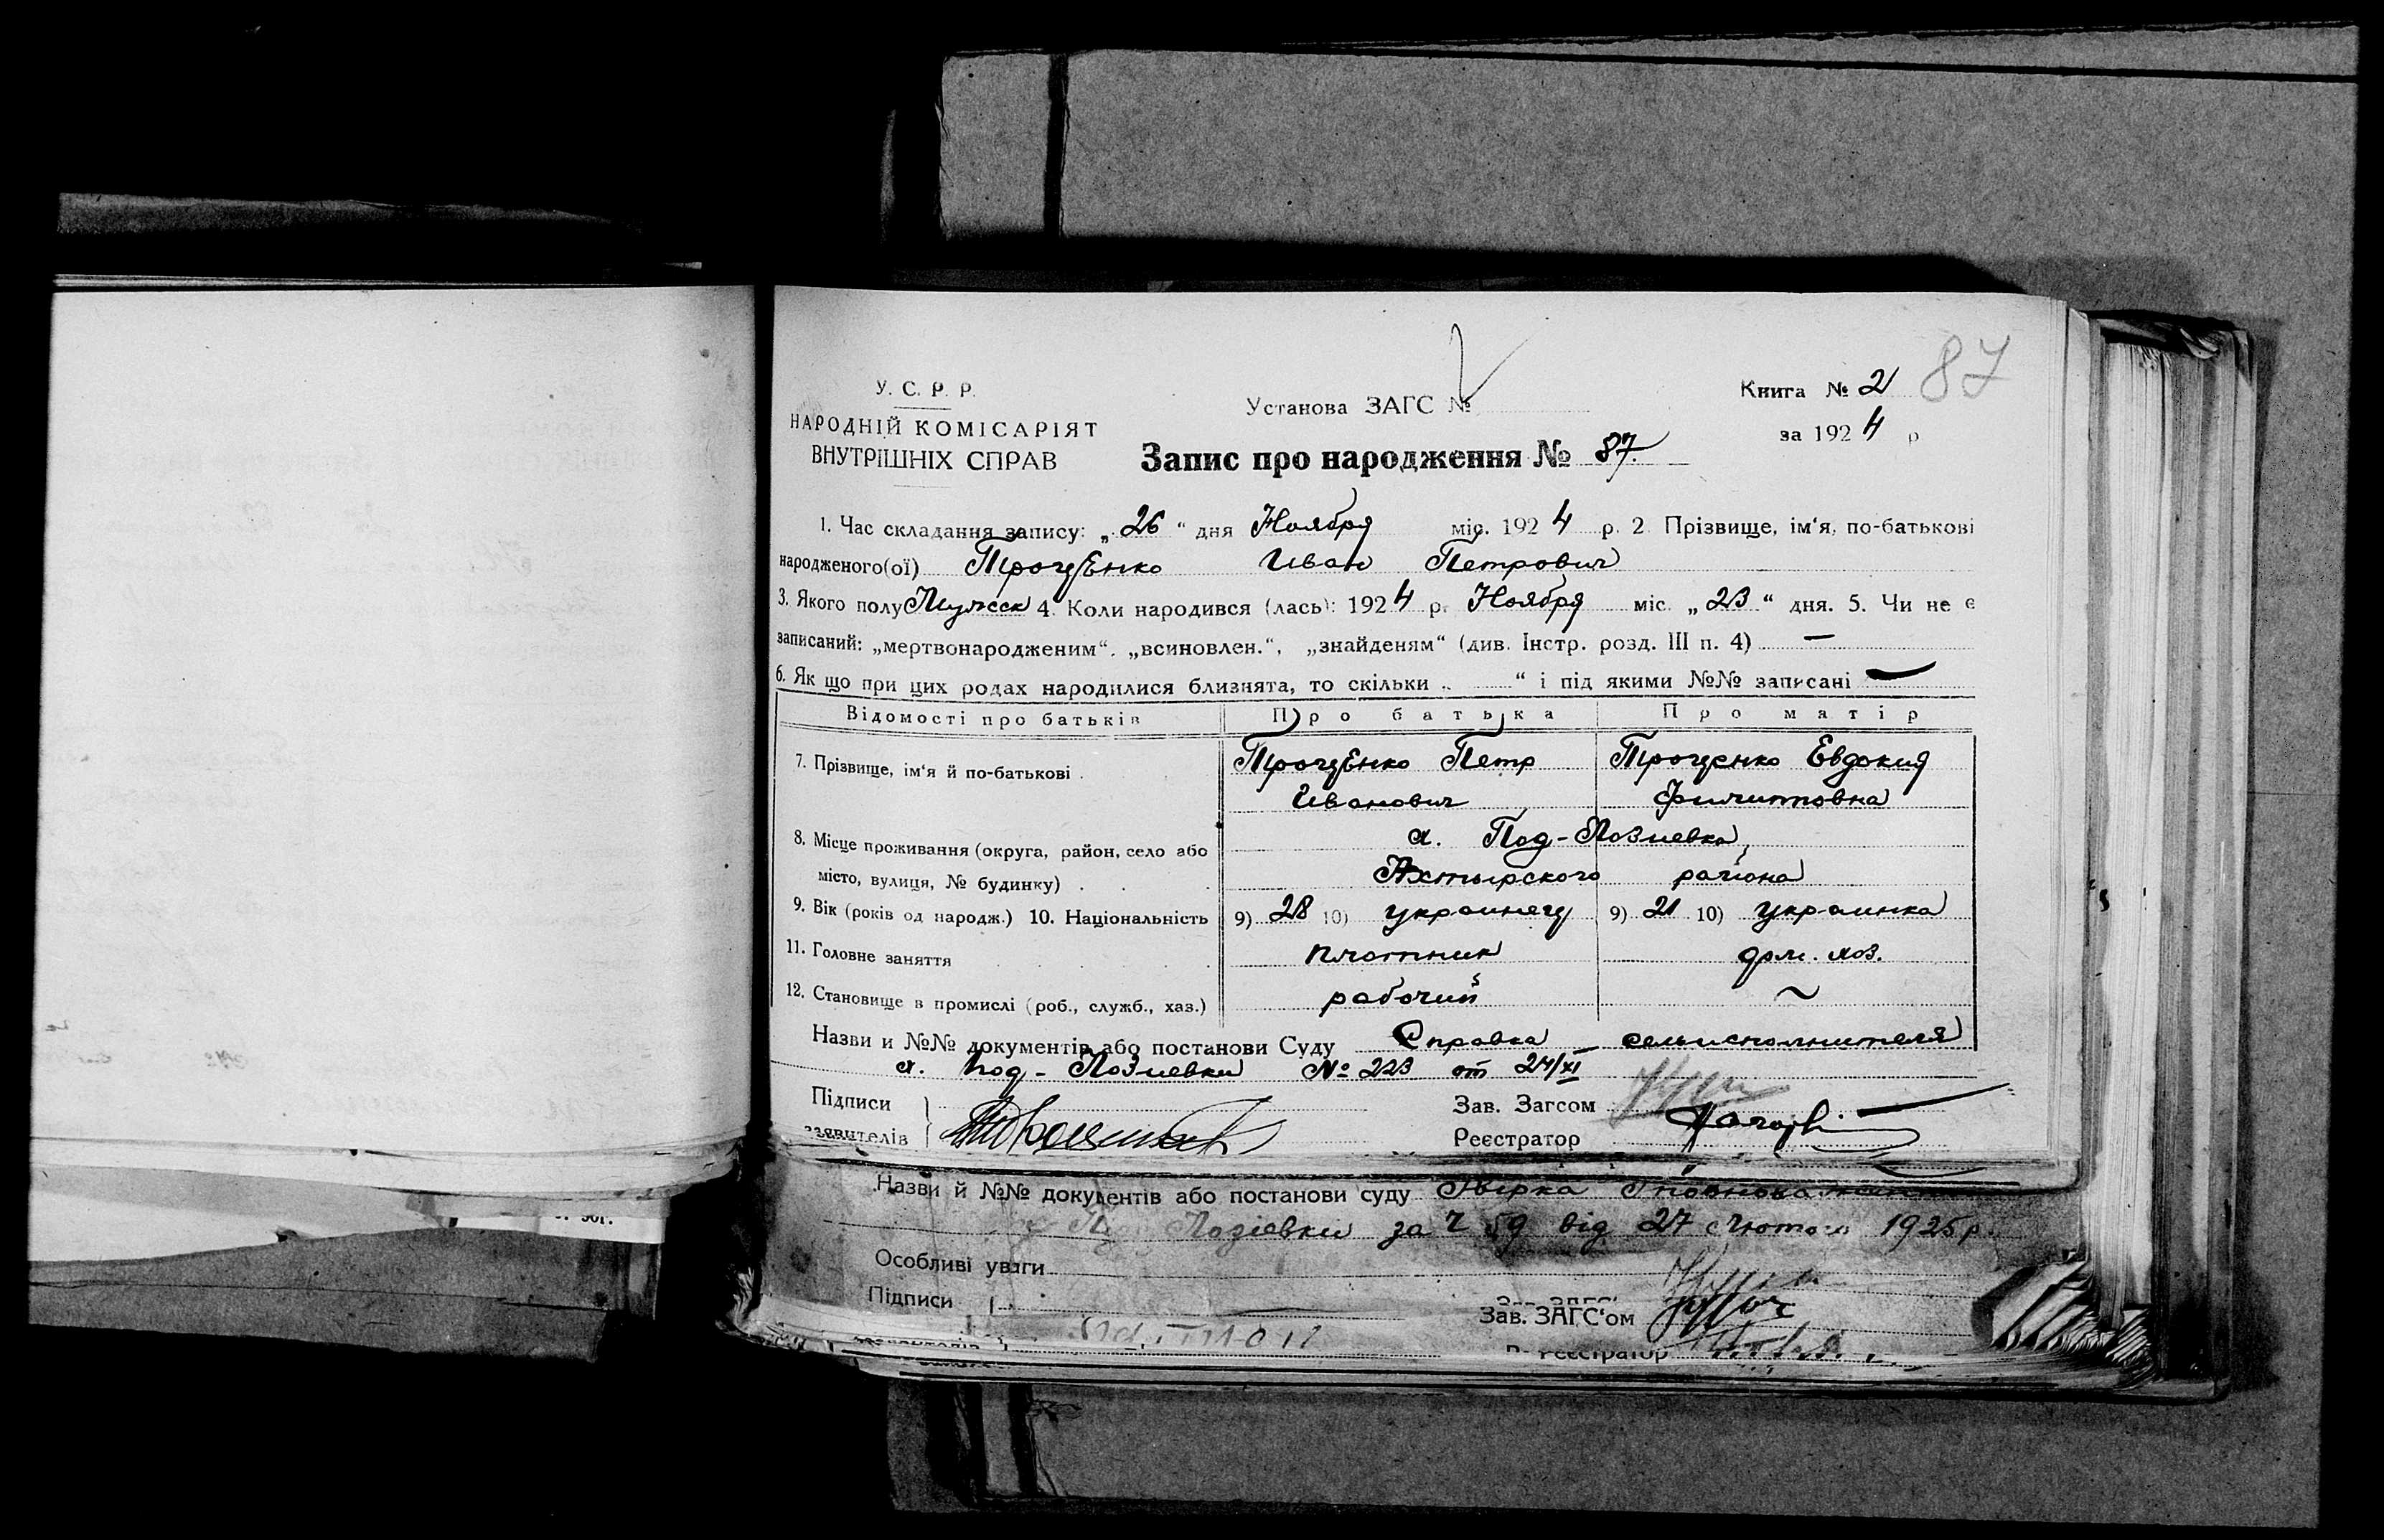 87
У. С. Р. Р.
НАРОДНІЙ КОМІСАРІЯТ
ВНУТРІШНІХ СПРАВ
Установа ЗАГС №
Книга № 2
за 1924 р
Запис про народження № 87.
1. Час складання запису: „26“ дня Ноября міс. 1924 р. 2. Прізвище, ім‘я, по-батькові
народженого(ої) Троценко Иван Петрович
3. Якого полу Мужск 4. Коли народився (лась): 1924 р. Ноября міс. „23“ дня. 5. Чи не є
записаний: „мертвонародженим“, „всиновлен.“, „знайденям“ (див. Інстр. розд. III п. 4) —
6. Як що при цих родах народилися близнята, то скільки „ “ і під якими №№ записані —
Відомості про батьків Про батька Про матір
7. Прізвище, ім‘я й по-батькові . Троценко Петр Троценко Евдокия
Иванович Филиповна
8. Місце проживання (округа, район, село або х. Под-Лозиевка,
місто, вулиця, № будинку) . . . Ахтырского района
9. Вік (років од народж.) 10. Національність 9) 28 10) украинец 9) 21 10) украинка
11. Головне заняття . . . плотник дом. хоз.
12. Становище в промислі (роб., служб., хаз.) рабочий ~
Назви и №№ документів або постанови Суду Справка сельисполнителя
х. Под-Лозиевки № 223 от 24/XI
Підписи
заявителів
Зав. Загсом
Реєстратор
Назви й №№ документів або постанови суду
Лозіевки за Ч 59 від 27 Лютого 1925 р.
Особливі уваги
Підписи
Зав. ЗАГС‘ом
Реєстратор